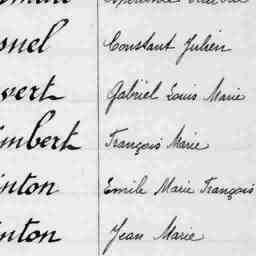 onel Constant Julien
vert Gabriel Louis Marie
imbert François Marie
inton Emile Marie François
inton Jean Marie